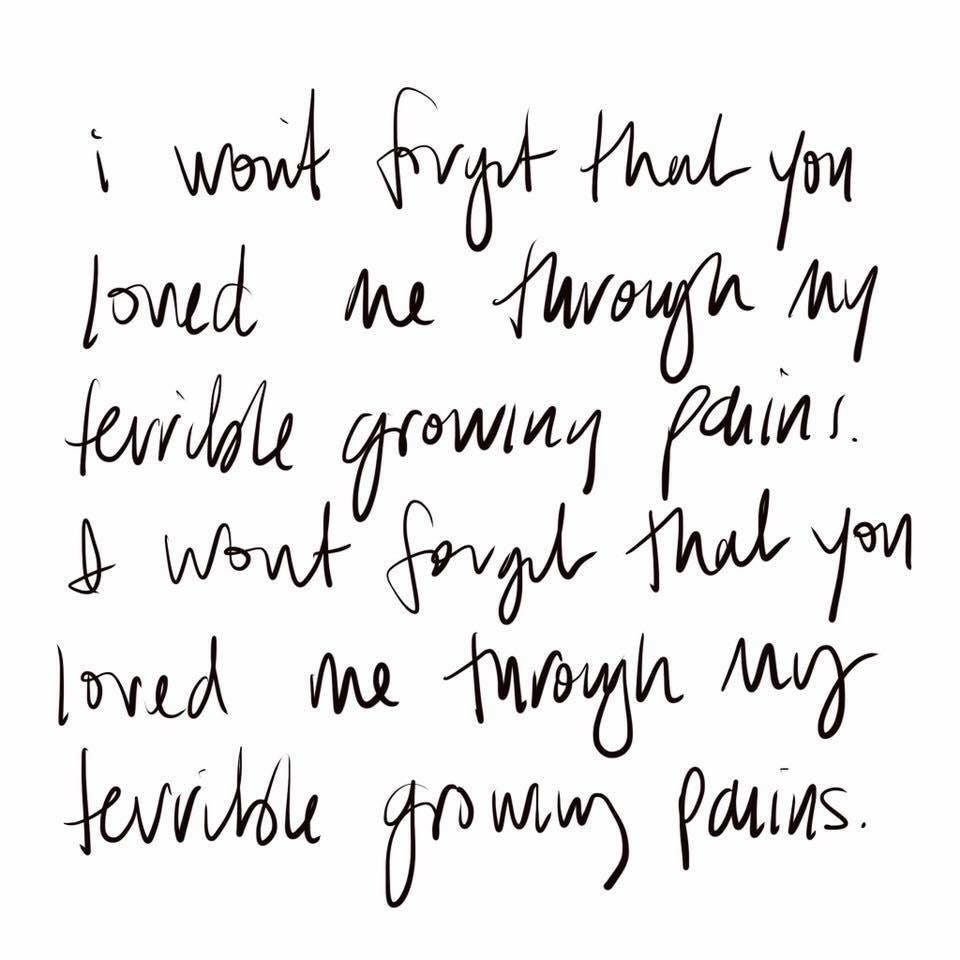 i won't forget that you
loved me through my
terrible growing pains.
I wont forget that you
loved me through my
terrible growing pains.